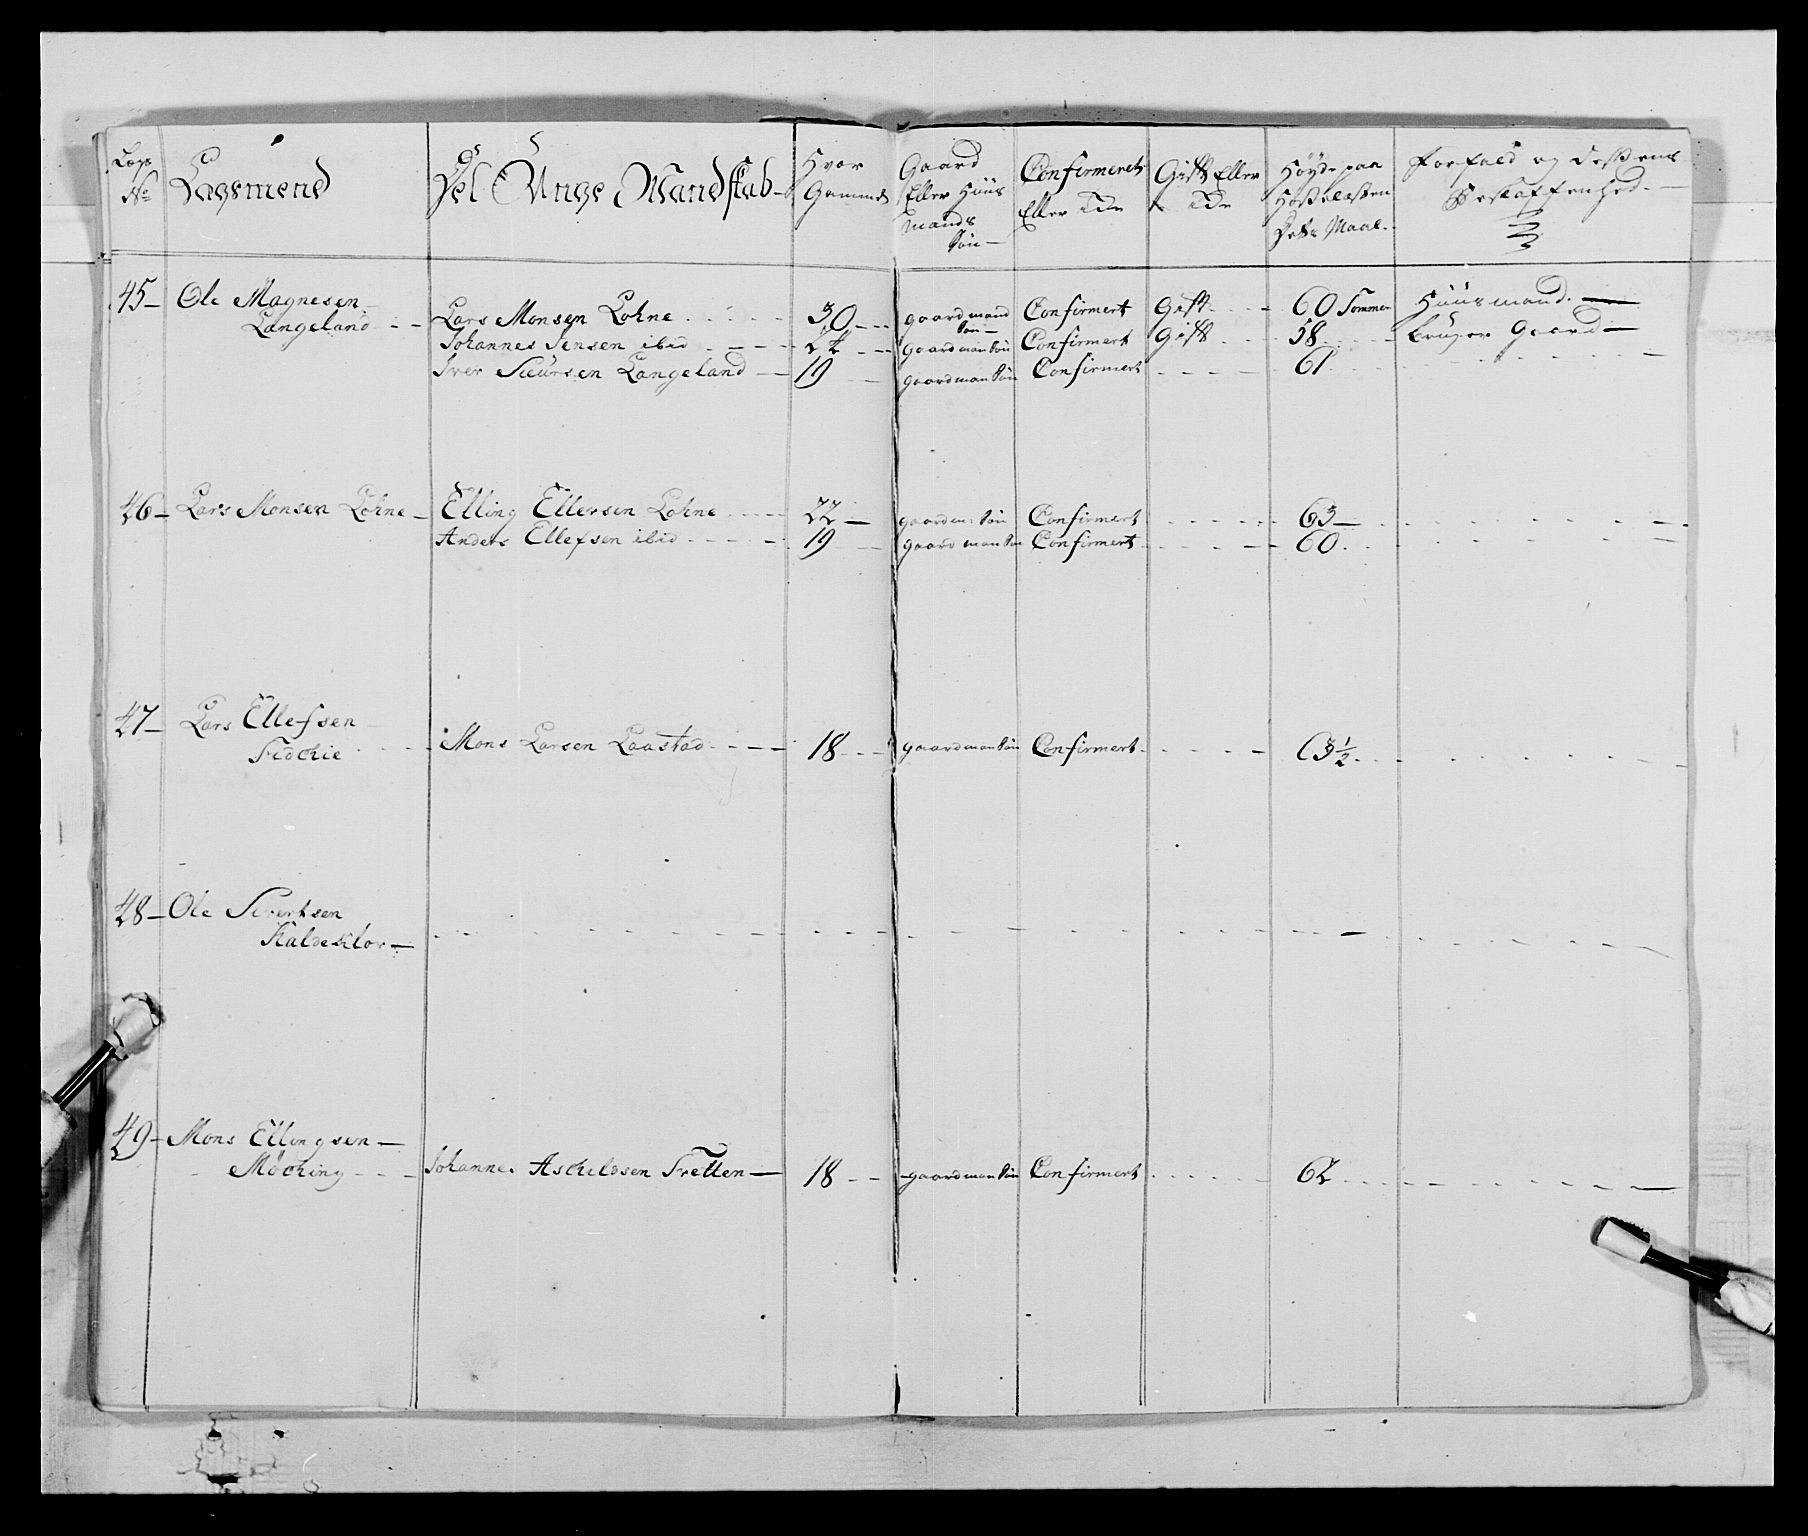 Legs No Legsmend Del Unge Mandskab Hvor Gammel Gaard Eller Huus mands Søn Confirmeret Eller Ide Gift Eller Ide Høyde paa Maal Forfald og dessens Beskaffenhed
45 Ole Magnesen
Langeland Lars Monsen Lohne 30 gaardmand Søn Confirmert Gift 60 Tommer Huusmand
Johannes Jensen ibid 24 gaardman Søn Confirmert Gift 58 bruger Gaard
Iver Siursen Langeland 19 gaardman Søn Confirmert 61
46 Lars Monsen Lohne Elling Ellersen Lohne 22 gaardm: Søn Confirmert 63
Anders Ellefsen ibid 19 gaardman Søn Confirmert 60
47 Lars Ellefsen
Mons Larsen Laastad 18 gaardman Søn Confirmert 63½
48 Ole Sivertsen
Kaldeklor
49 Mons Ellingsen
Møcking Johannes Askeldsen Tretten 18 gaardman Søn Confirmert 62